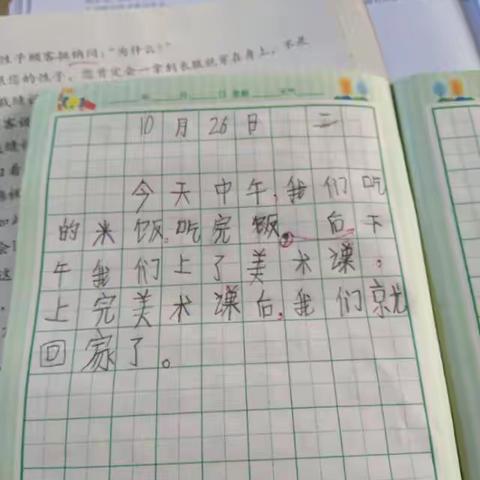 性子顾客挺纳闷:“为什么?”
您的性子,您肯定会一拿到衣服就穿在身上,不是
10月26日 二
今天中午,我们吃
的米饭。吃完饭。后下
午我们上了美术课,
上完美术课后,我们就
回家了。